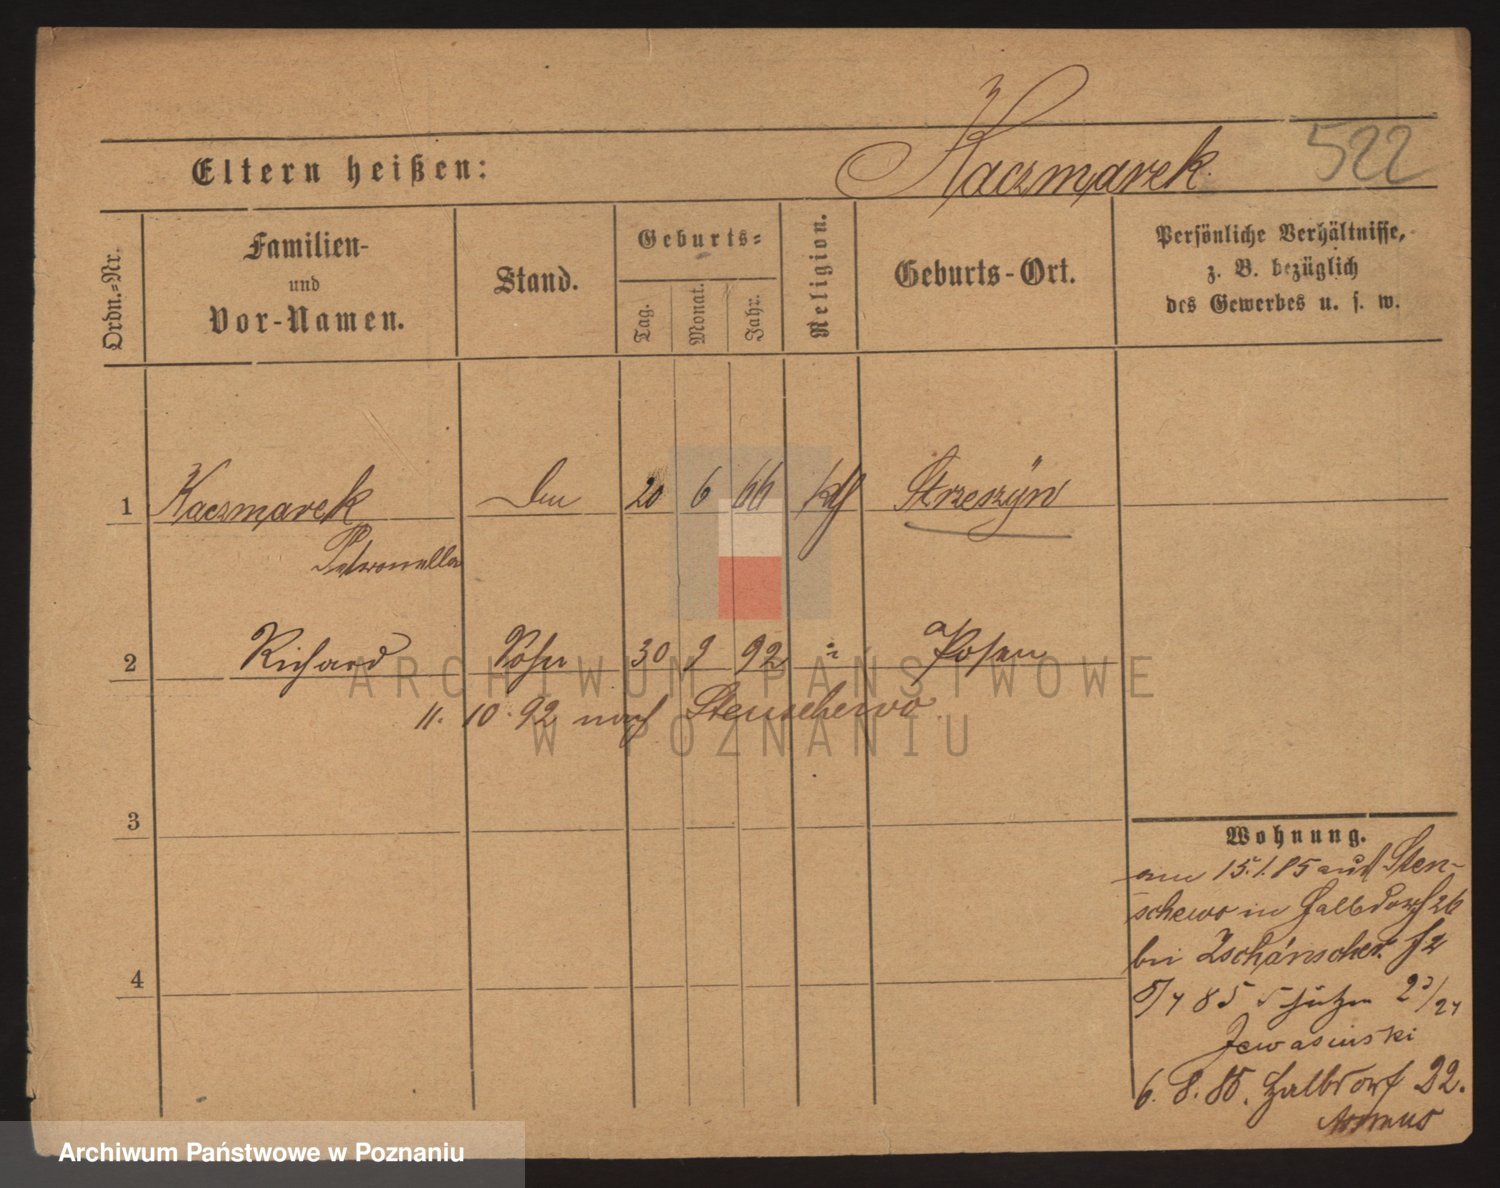 Kaczmarek. 522
Eltern heißen:
Ordn.-Nr.
Familien-
und
Vor-Namen.
Stand.
Geburts-
Tag.
Monat.
Jahr.
Religion.
Geburts-Ort.
Persönliche Verhältnisse,
z. B. bezüglich
des Gewerbes u. s. w.
1 Kaczmarek 20 6 66 kth Strzeszyn
Petronella
2 Richard Sohn 30 9 92 Posen
11. 10. 92 nach Stenschewo
3
4
Wohnung.
am 15.1.85 aus Sten-
schewo in Halbdorf 26
bei Zschánscher
5/7 85 Schützen 23/24
Jewasinski
6. 8. 85. Halbdorf 22.
Asmus
ARCHIWUM PAŃSTWOWE
W POZNANIU
Archiwum Państwowe w Poznaniu